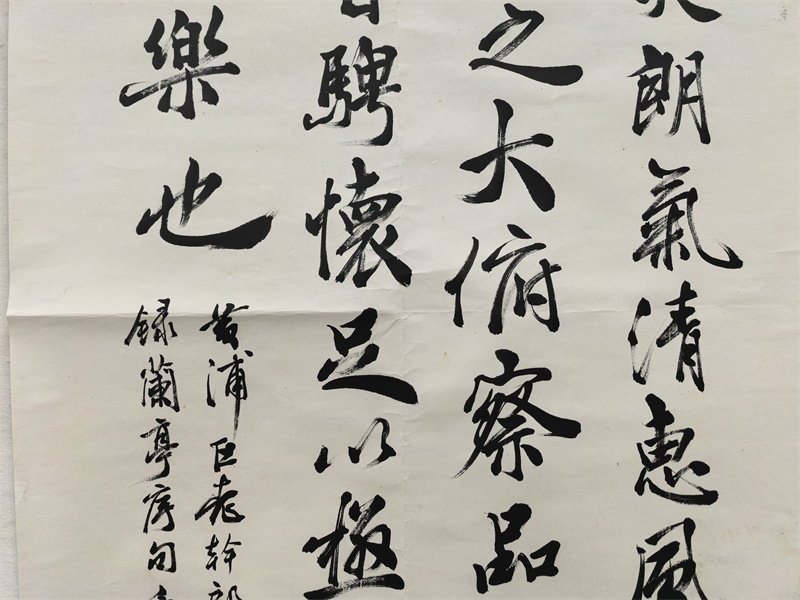 朗氣清惠風
之大俯察品
騁懷足以極
樂也
黄浦区老幹部
録蘭亭序句